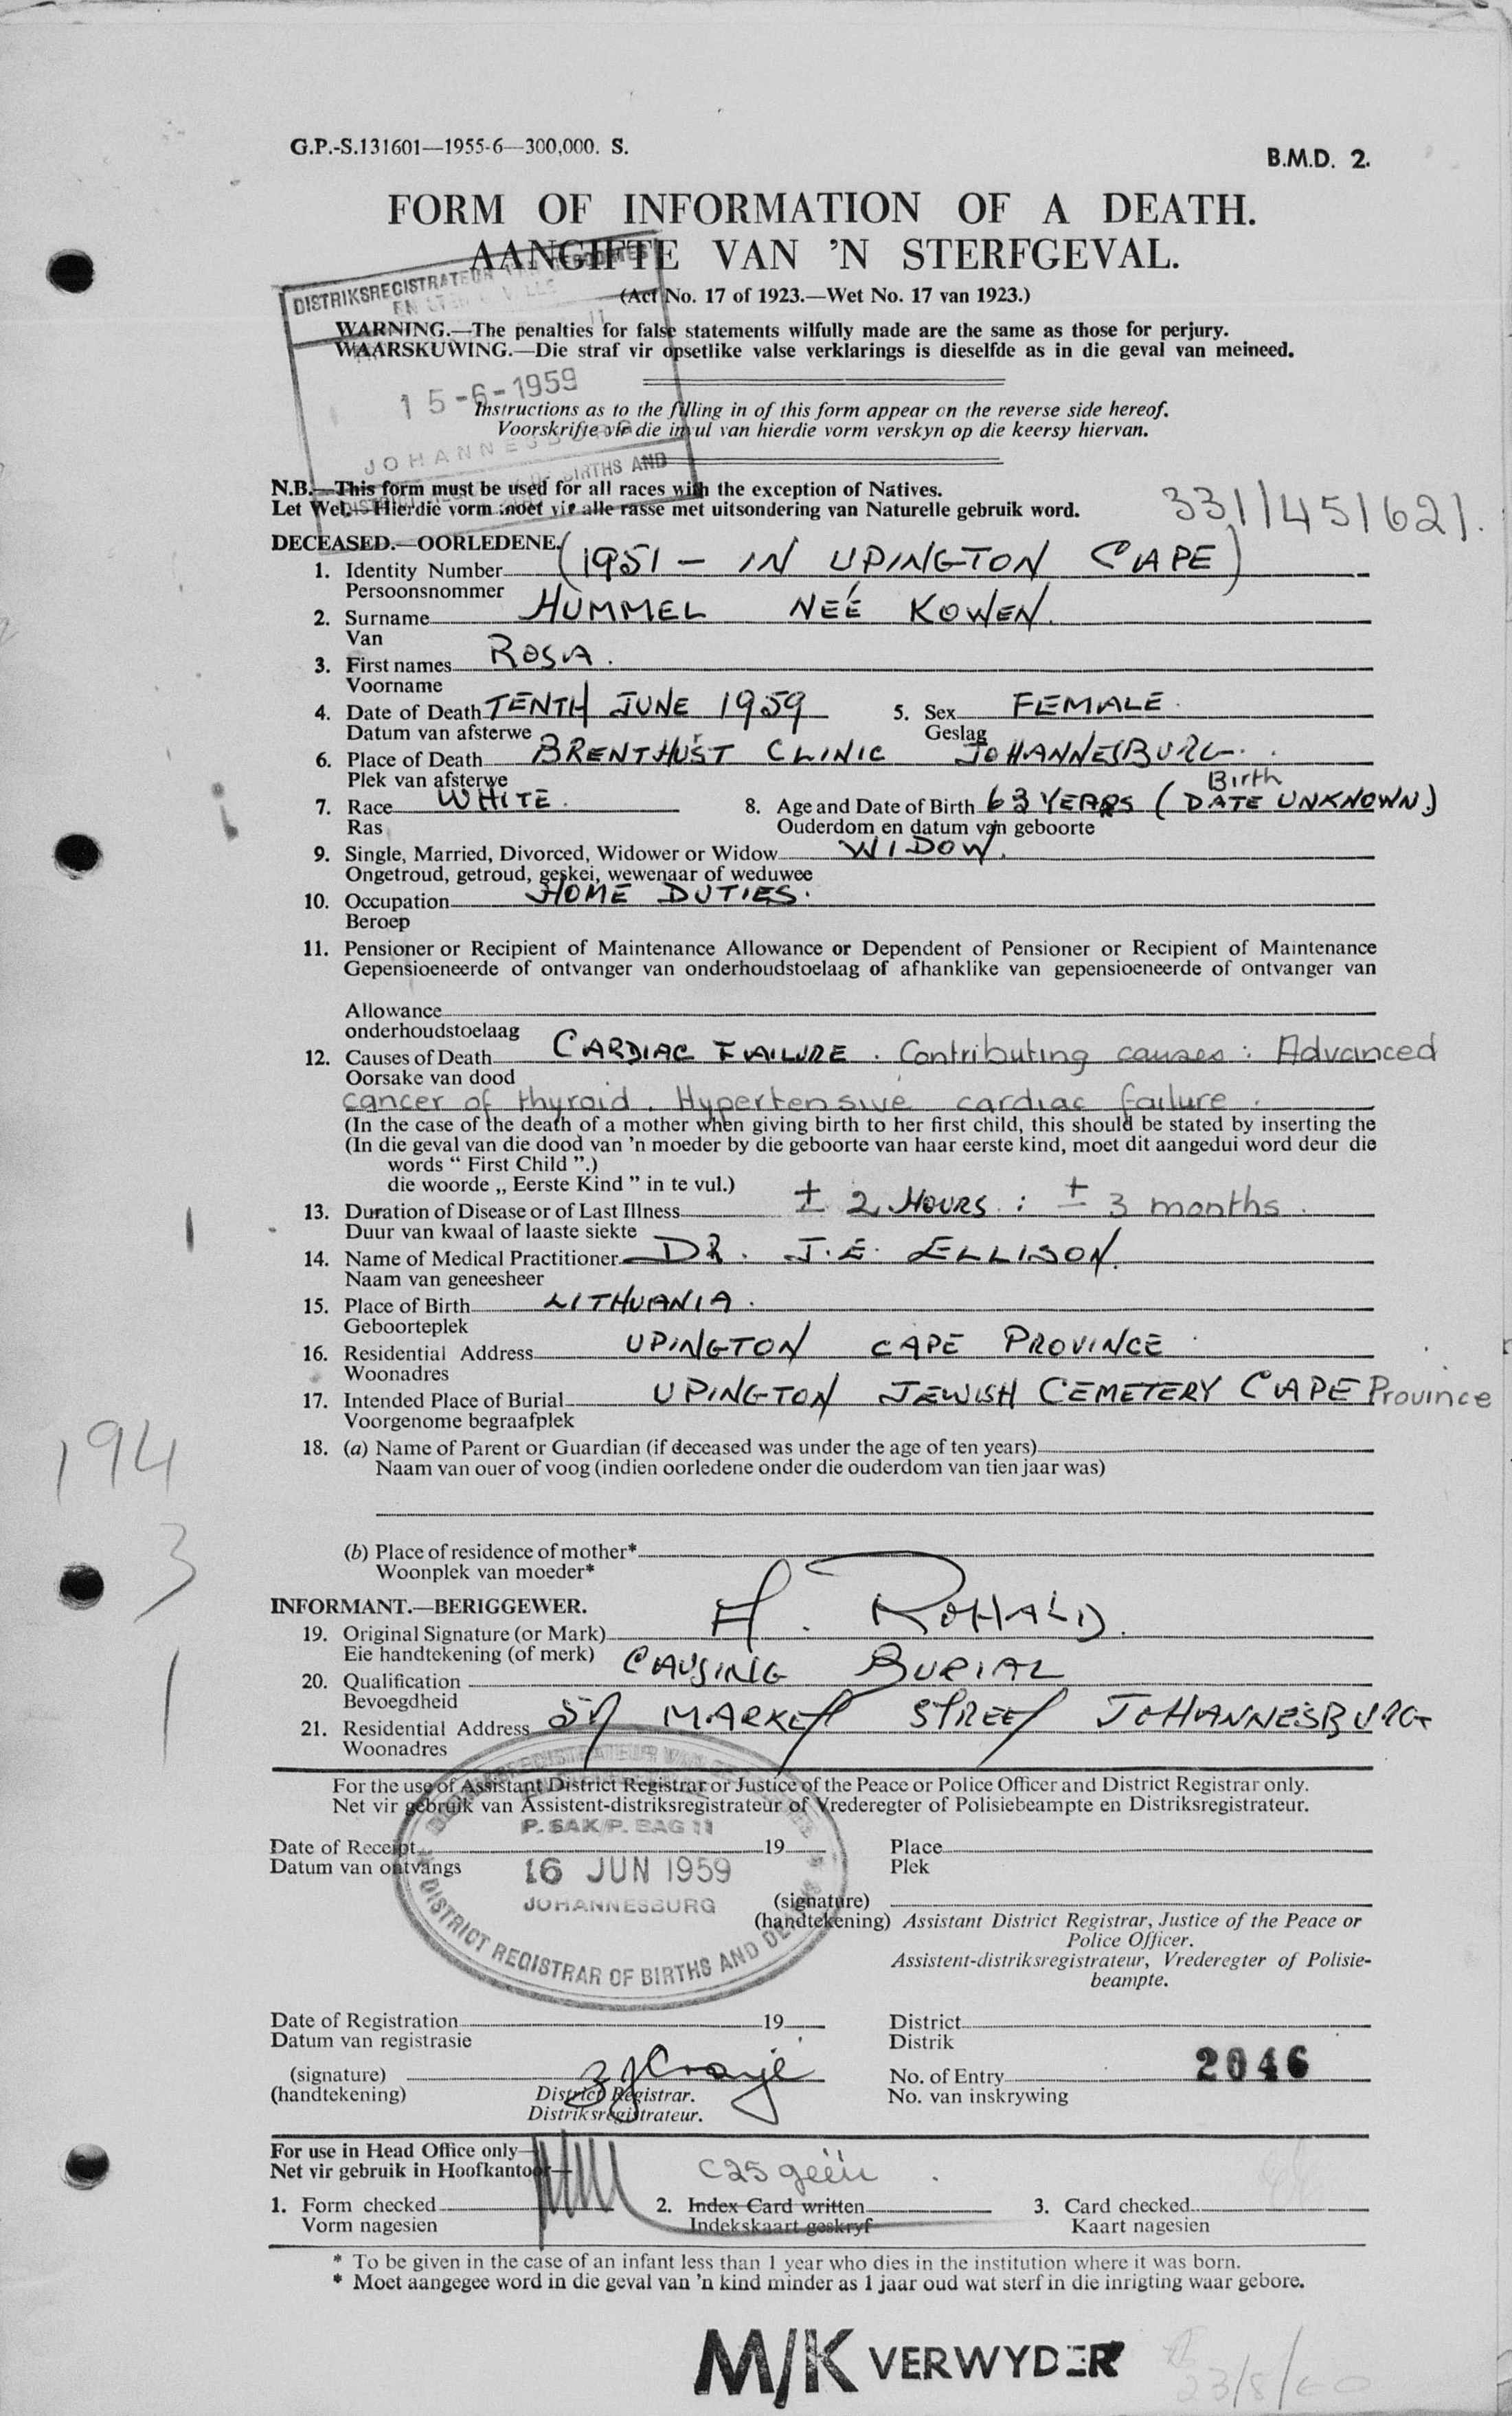 G.P.-S.131601—1955-6—300,000. S.
B.M.D. 2.
FORM OF INFORMATION OF A DEATH.
AANGIFTE VAN 'N STERFGEVAL.
(Act No. 17 of 1923.—Wet No. 17 van 1923.)
DISTRIKSREGISTRATEUR
WARNING.—The penalties for false statements wilfully made are the same as those for perjury.
WAARSKUWING.—Die straf vir opsetlike valse verklarings is dieselfde as in die geval van meineed.
15-6-1959
Instructions as to the filling in of this form appear on the reverse side hereof.
Voorskrifte vir die invul van hierdie vorm verskyn op die keersy hiervan.
JOHANNESBURG
BIRTHS AND
N.B.—This form must be used for all races with the exception of Natives.
Let Wel.—Hierdie vorm moet vir alle rasse met uitsondering van Naturelle gebruik word.
331/451621.
DECEASED.—OORLEDENE.
1. Identity Number (1951 - IN UPINGTON CAPE)
Persoonsnommer
2. Surname HUMMEL NEÉ KOWEN.
Van
3. First names ROSA.
Voorname
4. Date of Death TENTH JUNE 1959 5. Sex FEMALE.
Datum van afsterwe Geslag
6. Place of Death BRENTHUST CLINIC JOHANNESBURG.
Plek van afsterwe
Birth
7. Race WHITE. 8. Age and Date of Birth 63 YEARS (DATE UNKNOWN.)
Ras Ouderdom en datum van geboorte
9. Single, Married, Divorced, Widower or Widow WIDOW.
Ongetroud, getroud, geskei, wewenaar of weduwee
10. Occupation HOME DUTIES.
Beroep
11. Pensioner or Recipient of Maintenance Allowance or Dependent of Pensioner or Recipient of Maintenance
Gepensioeneerde of ontvanger van onderhoudstoelaag of afhanklike van gepensioeneerde of ontvanger van
Allowance
onderhoudstoelaag
12. Causes of Death CARDIAC FAILURE. Contributing causes: Advanced
Oorsake van dood
cancer of thyroid. Hypertensive cardiac failure.
(In the case of the death of a mother when giving birth to her first child, this should be stated by inserting the
(In die geval van die dood van 'n moeder by die geboorte van haar eerste kind, moet dit aangedui word deur die
words " First Child ".)
die woorde „ Eerste Kind " in te vul.)
13. Duration of Disease or of Last Illness ± 2 HOURS : ± 3 months.
Duur van kwaal of laaste siekte
14. Name of Medical Practitioner DR. J.E. ELLISON.
Naam van geneesheer
15. Place of Birth LITHUANIA.
Geboorteplek
16. Residential Address UPINGTON CAPE PROVINCE
Woonadres
17. Intended Place of Burial UPINGTON JEWISH CEMETERY CAPE Province
Voorgenome begraafplek
194
18. (a) Name of Parent or Guardian (if deceased was under the age of ten years)
Naam van ouer of voog (indien oorledene onder die ouderdom van tien jaar was)
3
(b) Place of residence of mother*
Woonplek van moeder*
INFORMANT.—BERIGGEWER.
19. Original Signature (or Mark)
Eie handtekening (of merk)
20. Qualification CAUSING BURIAL
Bevoegdheid
21. Residential Address MARKET STREET JOHANNESBURG
Woonadres
For the use of Assistant District Registrar or Justice of the Peace or Police Officer and District Registrar only.
Net vir gebruik van Assistent-distriksregistrateur of Vrederegter of Polisiebeampte en Distriksregistrateur.
P. SAK/P. BAG 11
Date of Receipt 19 Place
Datum van ontvangs Plek
16 JUN 1959
JOHANNESBURG
DISTRICT REGISTRAR OF BIRTHS AND DEATHS
(signature)
(handtekening) Assistant District Registrar, Justice of the Peace or
Police Officer.
Assistent-distriksregistrateur, Vrederegter of Polisie-
beampte.
Date of Registration 19 District
Datum van registrasie Distrik
(signature) No. of Entry 2046
(handtekening) District Registrar. No. van inskrywing
Distriksregistrateur.
For use in Head Office only—
Net vir gebruik in Hoofkantoor—
C25 geen
1. Form checked 2. Index Card written 3. Card checked
Vorm nagesien Indekskaart geskryf Kaart nagesien
* To be given in the case of an infant less than 1 year who dies in the institution where it was born.
* Moet aangegee word in die geval van 'n kind minder as 1 jaar oud wat sterf in die inrigting waar gebore.
M/K VERWYDER
23/8/60